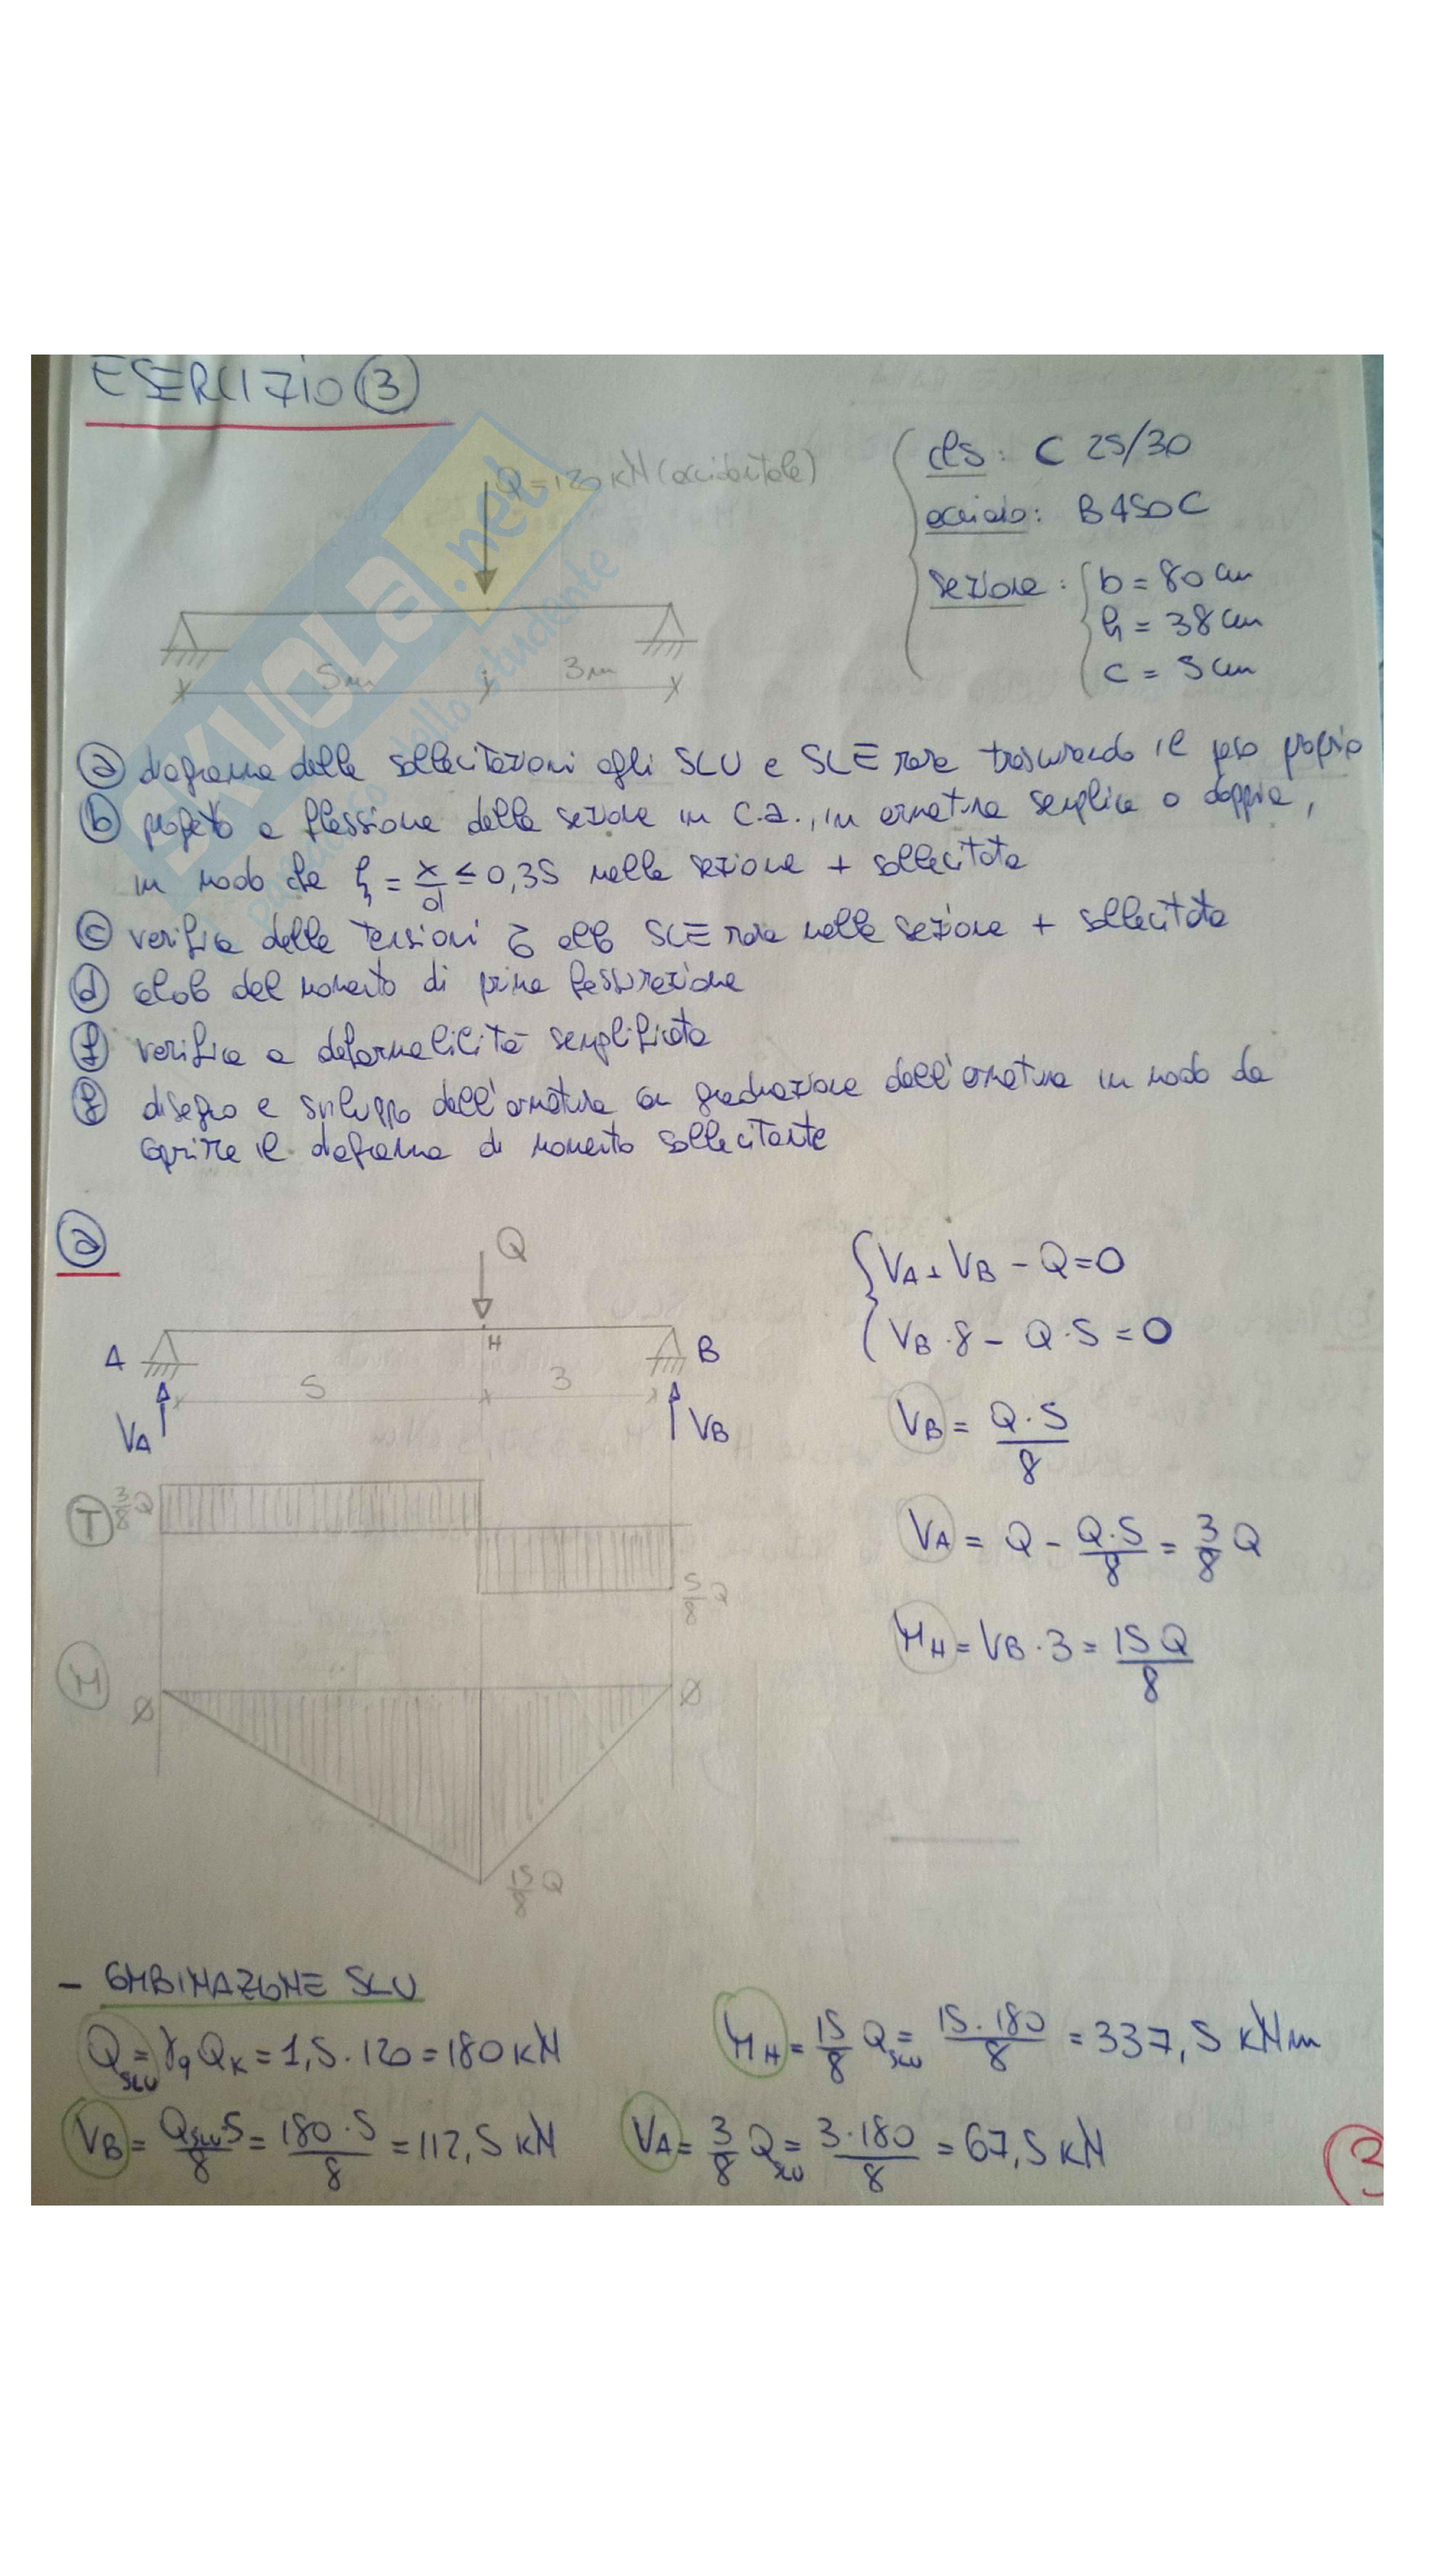 ESERCIZIO ③
Q=120 kN (accidentale)
5m
3m
cls: C 25/30
acciaio: B450C
sezione: b = 80 cm
h = 38 cm
c = 5 cm
ⓐ diagramma delle sollecitazioni agli SLU e SLE rara trascurando il peso proprio
ⓑ progetto a flessione della sezione in c.a., in armatura semplice o doppia,
in modo che ξ = x/d ≤ 0,35 nella sezione + sollecitata
ⓒ verifica delle tensioni σ allo SLE rara nella sezione + sollecitata
ⓓ calcolo del momento di prima fessurazione
verifica a deformabilità semplificata
disegno e sviluppo dell'armatura con gradazione dell'armatura in modo da
coprire il diagramma di momento sollecitante
ⓐ
Q
A
H
B
5
3
VA
VB
VA + VB - Q = 0
VB · 8 - Q · 5 = 0
VB = Q·5/8
VA = Q - Q·5/8 = 3/8 Q
MH = VB · 3 = 15Q/8
T
3/8 Q
5/8 Q
M
Ø
Ø
15/8 Q
- COMBINAZIONE SLU
QSLU = γq QK = 1,5 · 120 = 180 kN
MH = 15/8 QSLU = 15·180/8 = 337,5 kNm
VB = QSLU·5/8 = 180·5/8 = 112,5 kN
VA = 3/8 QSLU = 3·180/8 = 67,5 kN
3
SKUOLA.net
paradiso dello studente